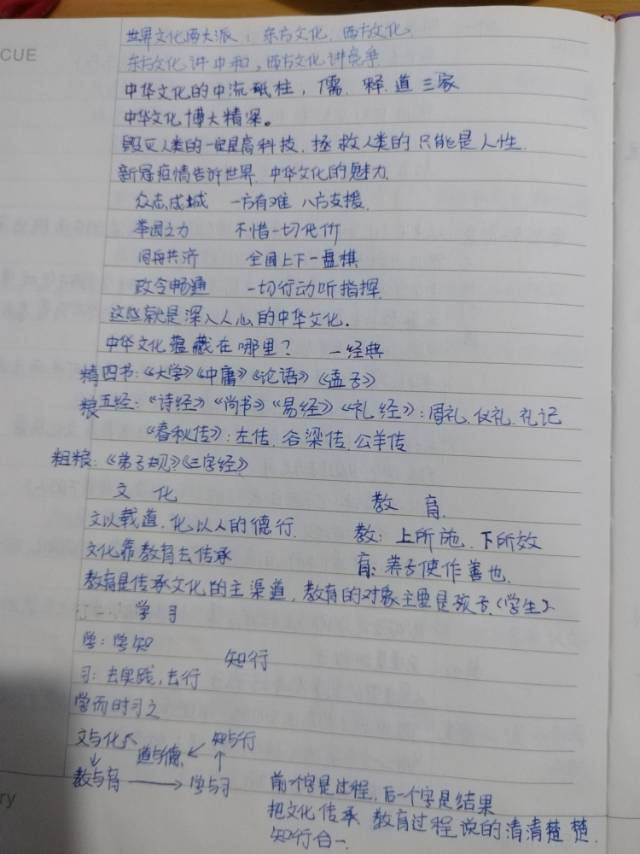 CUE
世界文化两大派:东方文化、西方文化。
东方文化讲中和,西方文化讲竞争
中华文化的中流砥柱,儒、释、道三家
中华文化博大精深。
毁灭人类的一定是高科技,拯救人类的只能是人性.
新冠疫情告诉世界、中华文化的魅力.
众志成城 一方有难 八方支援.
举国之力 不惜一切代价
同舟共济 全国上下一盘棋
政令畅通 一切行动听指挥.
这些就是深入人心的中华文化.
中华文化蕴藏在哪里? —经典
精四书:《大学》《中庸》《论语》《孟子》
粮五经:《诗经》《尚书》《易经》《礼经》:周礼.仪礼.礼记
《春秋传》:左传.谷梁传.公羊传
粗粮:《弟子规》《三字经》
文化 教育
文以载道,化以人的德行. 教:上所施、下所效
文化靠教育去传承 育:养子使作善也.
教育是传承文化的主渠道,教育的对象主要是孩子.(学生)
学习
学:学知
知行
习:去实践,去行
学而时习之
文与化 道与德 知与行
教与育 学与习
前一个字是过程,后一个字是结果
把文化传承、教育过程说的清清楚楚.
知行合一.
ry